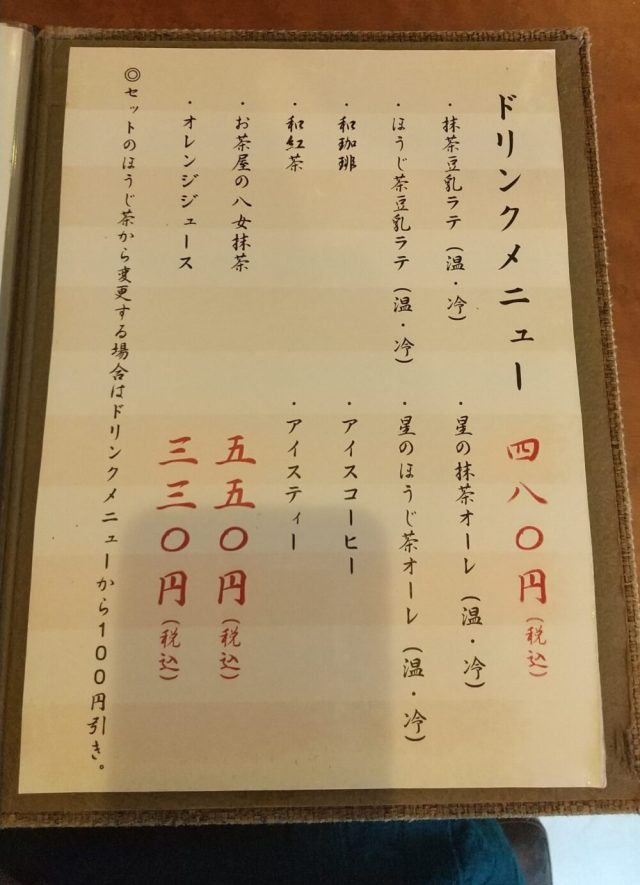 ドリンクメニュー 四八〇円(税込)
・抹茶豆乳ラテ(温・冷) ・星の抹茶オーレ(温・冷)
・ほうじ茶豆乳ラテ(温・冷) ・星のほうじ茶オーレ(温・冷)
・和珈琲 ・アイスコーヒー
・和紅茶 ・アイスティー
・お茶屋の八女抹茶 五五〇円(税込)
・オレンジジュース 三三〇円(税込)
◎セットのほうじ茶から変更する場合はドリンクメニューから100円引き。